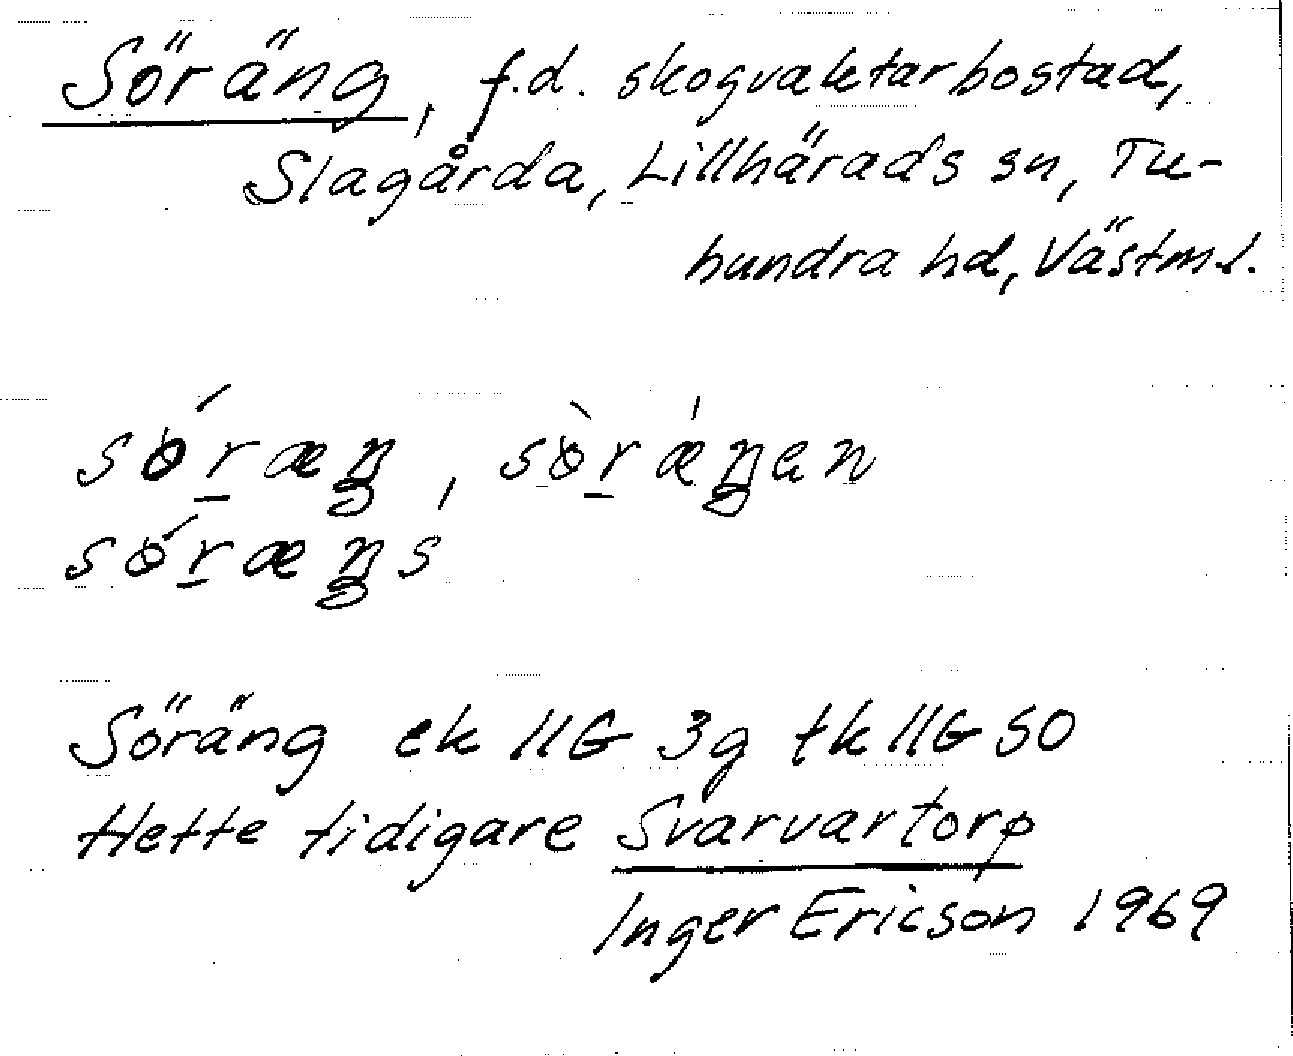 Söräng, f.d. skogvaktarbostad,
Slagårda, Lillhärads sn, Tu-
hundra hd, Västml.
sö́r̲æŋ, sö̀r̲ǽŋan
sö́r̲æŋs
Söräng ek 11G 3g tk 11G SO
Hette tidigare Svarvartorp
Inger Ericson 1969